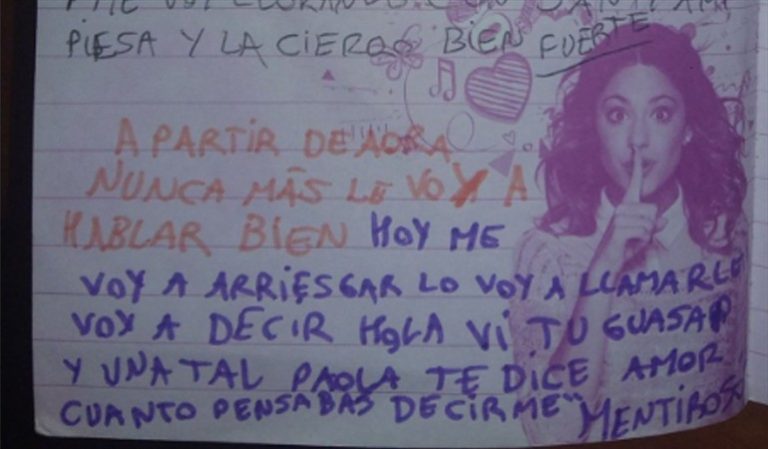 Y ME VOY LLORANDO CON
PIESA Y LA CIERRO BIEN FUERTE
A PARTIR DE AORA
NUNCA MÁS LE VOY A
HABLAR BIEN HOY ME
VOY A ARRIESGAR LO VOY A LLAMAR LE
VOY A DECIR HOLA VI TU GUASAP
Y UNA TAL PAOLA TE DICE AMOR
CUANTO PENSABAS DECIRME" MENTIROSO